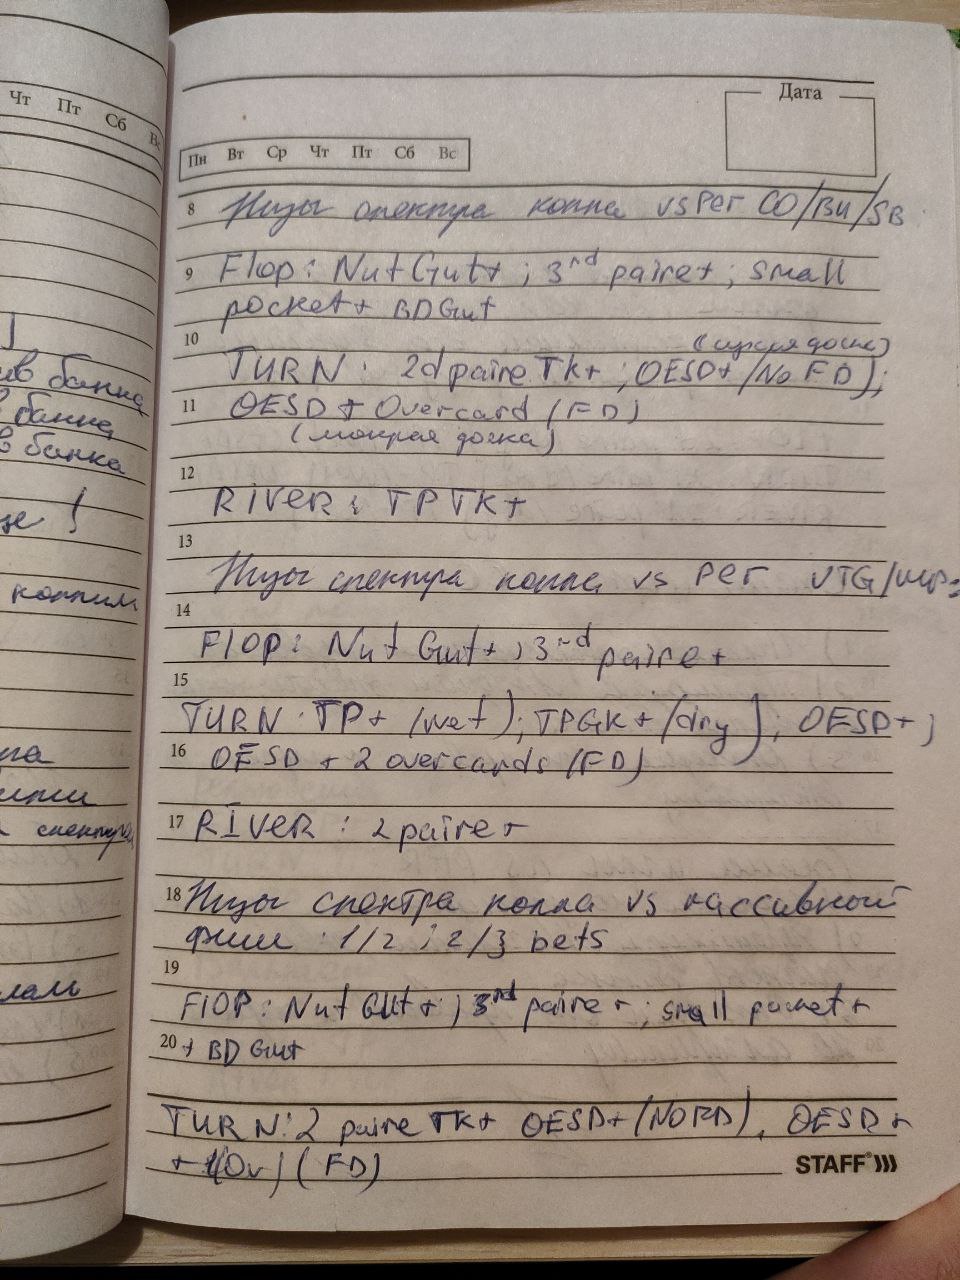 Чт Пт Сб Вс
Дата
Пн Вт Ср Чт Пт Сб Вс
8 Низы спектра колла vs Рег CO/BU/SB
9 Flop: Nut Gut+ ; 3rd paire+ ; small
pocket+ BD Gut
10 (сухая доска)
TURN: 2d paire TK+ ; OESD+ (No FD);
11 OESD + Overcard (FD)
(мокрая доска)
12
RIVER: TPTK+
13
Низы спектра колла vs Рег UTG/MP:
14
Flop: Nut Gut+ ; 3rd paire+
15
TURN: TP+ (wet); TPGK+ (dry); OESD+;
16 OESD + 2 overcards (FD)
17 RIVER: 2 paire+
18 Низы спектра колла vs пассивной
фиш: 1/2 ; 2/3 bets
19
FlOP: Nut Gut+ ; 3rd paire+ ; small pocket+
20 + BD Gut
TURN: 2 paire TK+ OESD+ (NOFD), OESD+
+ 1(Ov) (FD)
STAFF
банка
банка
в банка
коллим
спектра